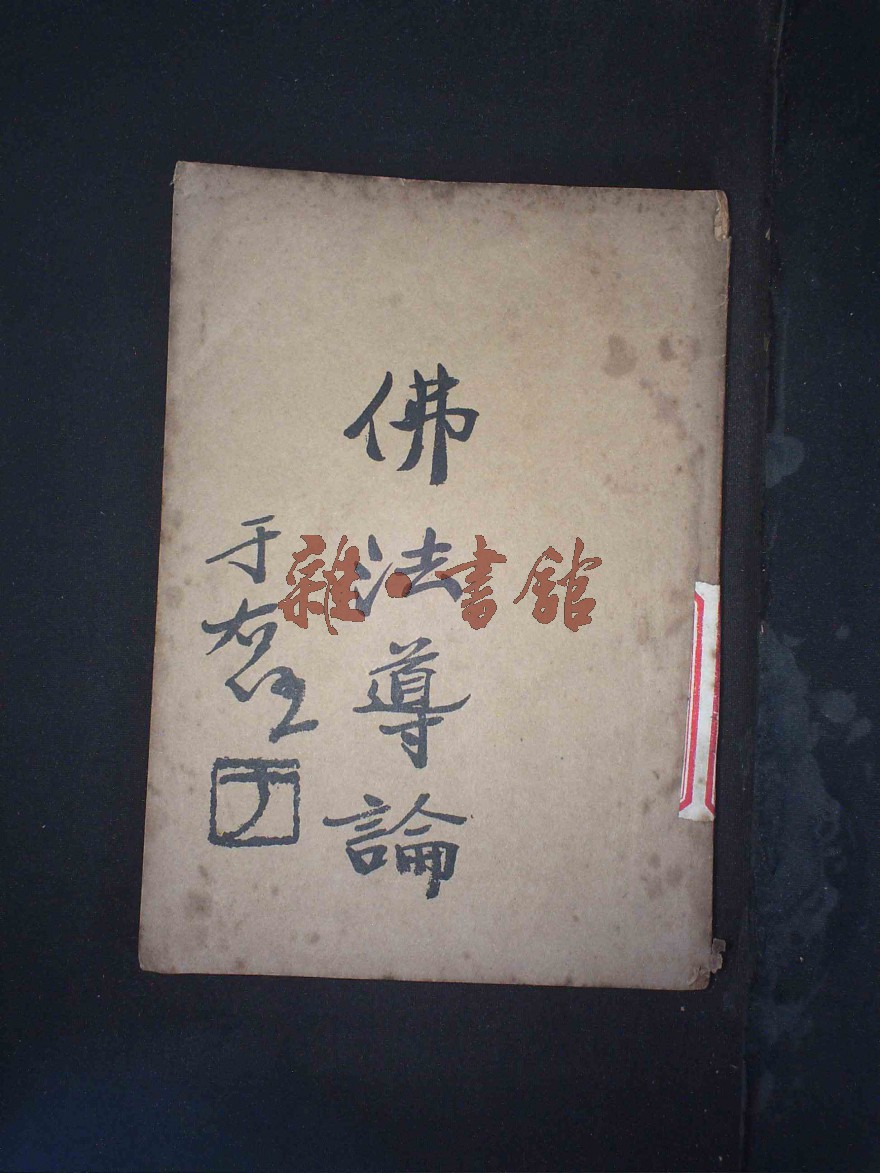 佛法導論
于右任
于
雜·書館